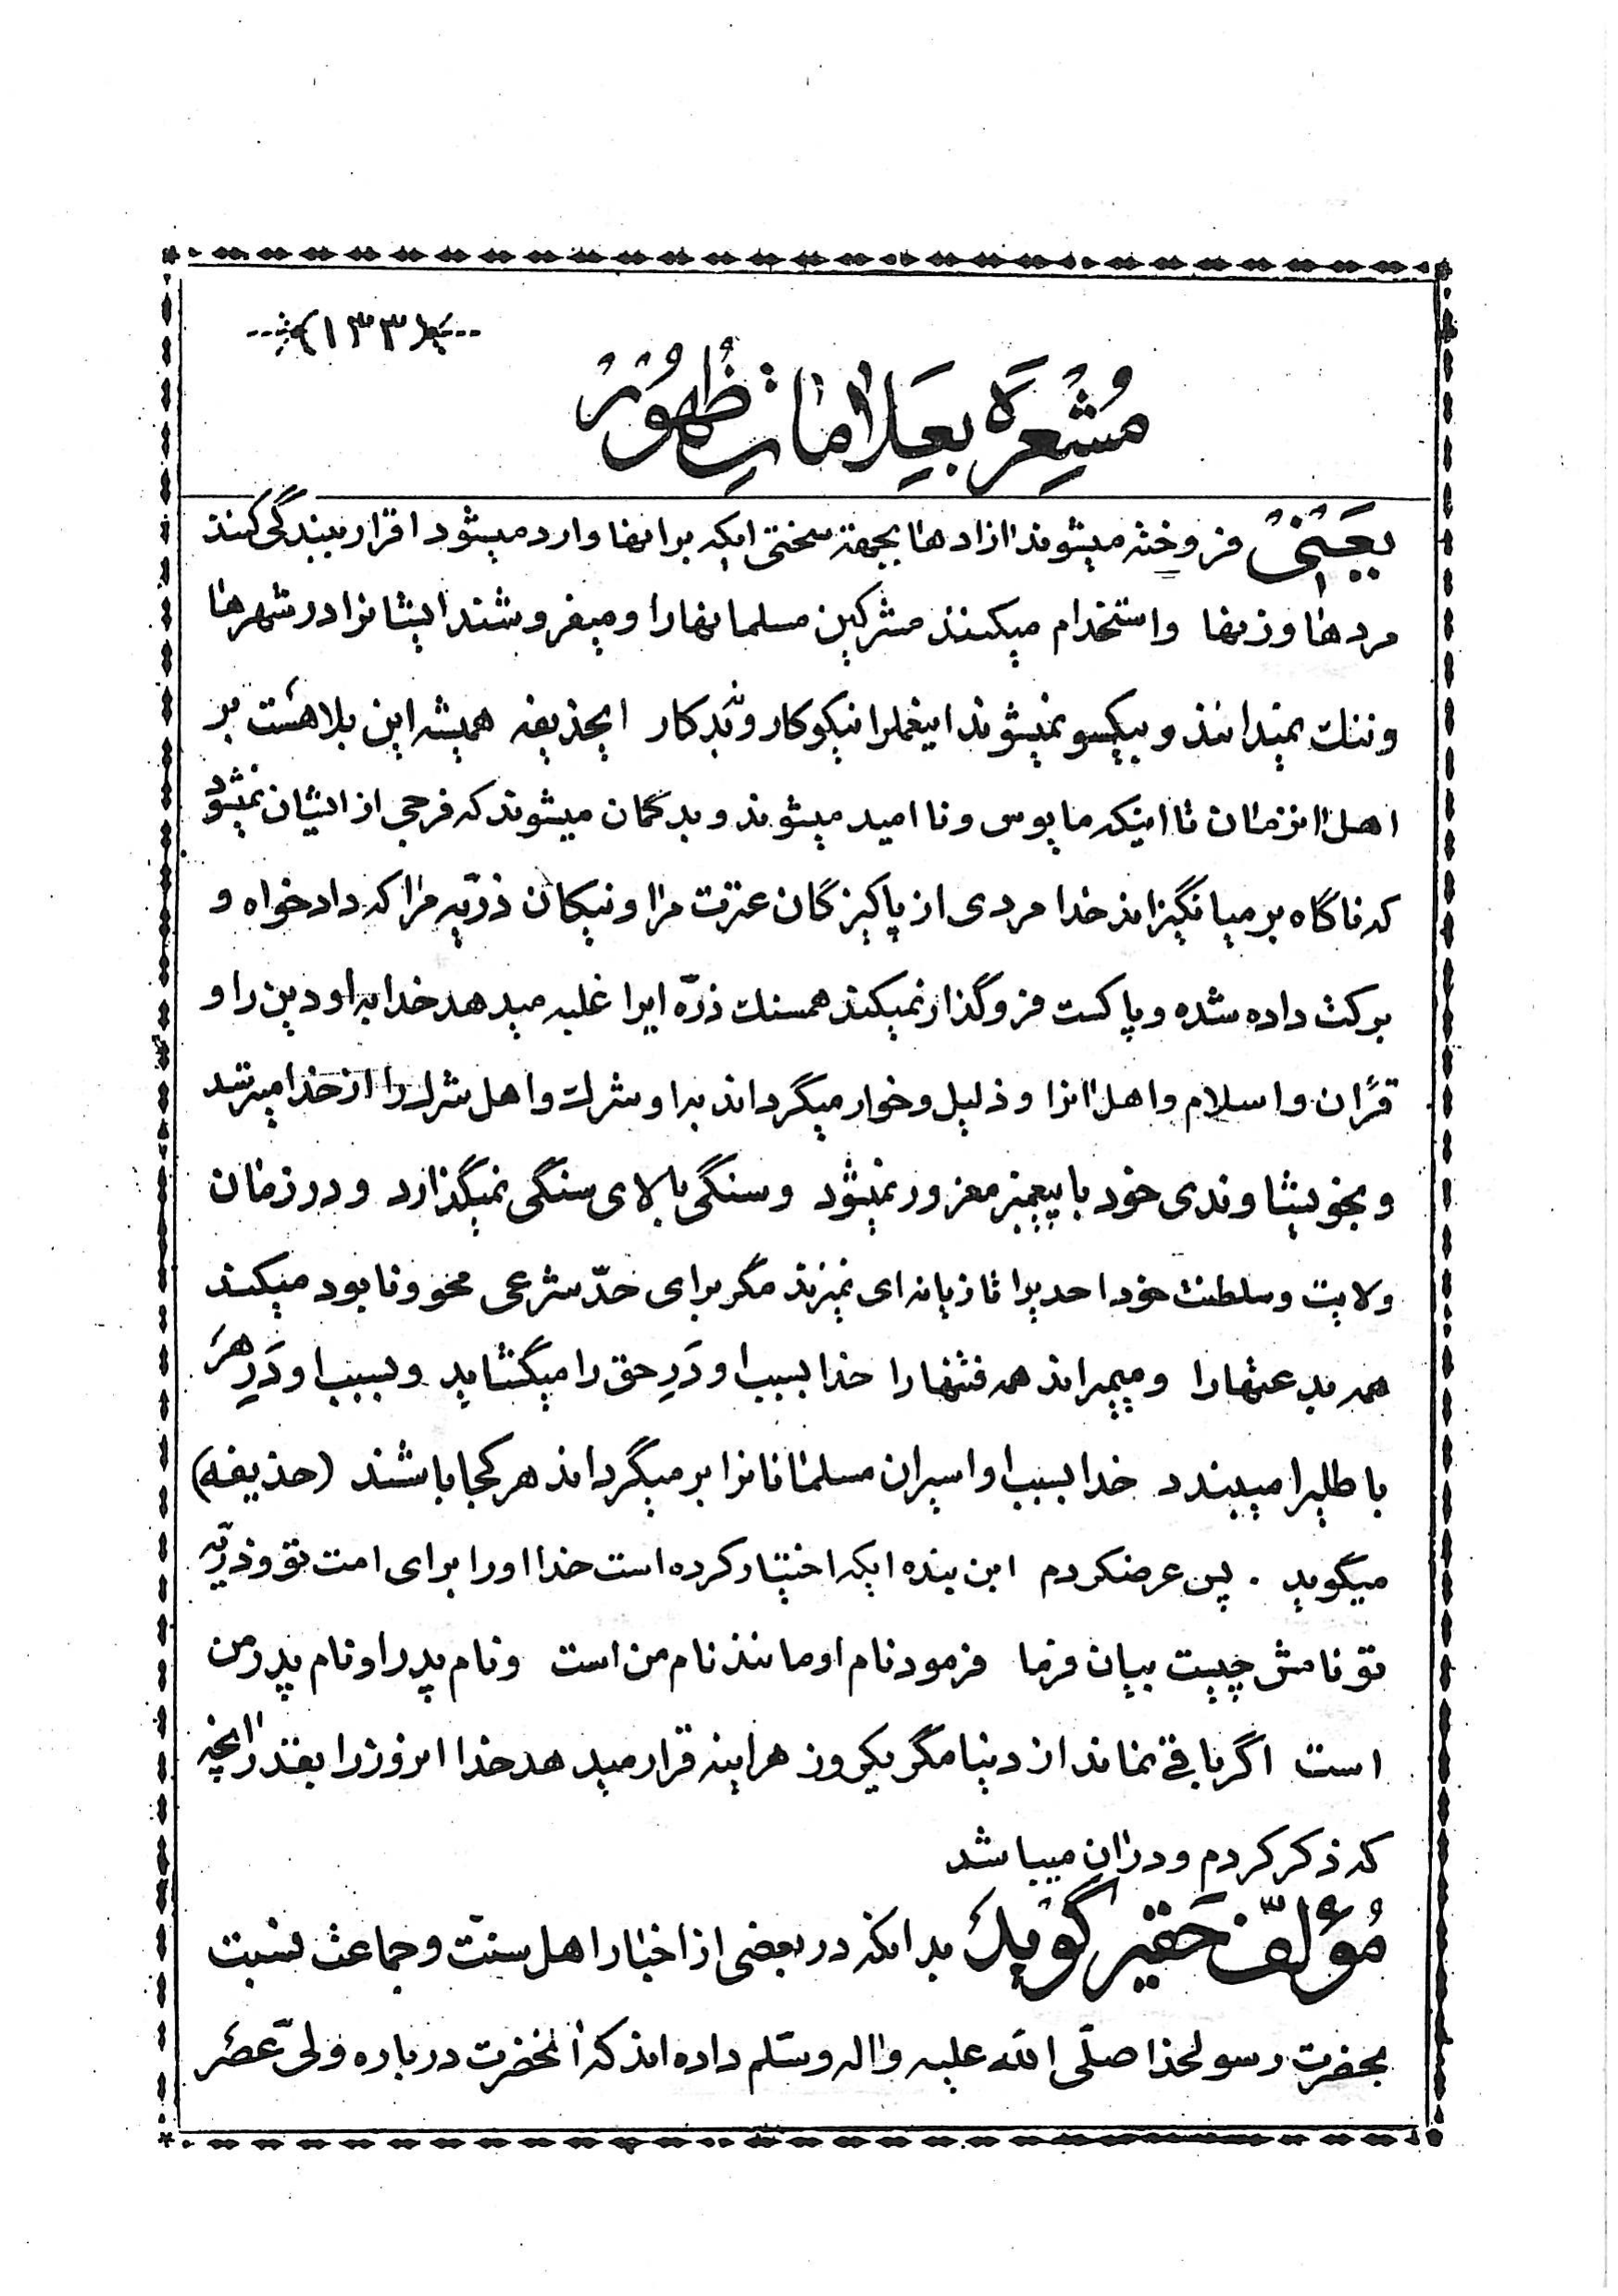 (۱۳۳)
مُشعِرَه بعَلاماتِ ظُهُور
یَعنی فروخته میشوند ازادها بجهة سختی ایکه برانها وارد میشود اقرار ببندگی کنند
مردها وزنها واستخدام میکنند مشرکین مسلمانهارا ومیفروشند ایشانرا در شهرها
وننك نمیدانند وبیکسو نمیشوند اینعملرا نیکوکار ونه بدکار ایحذیفه همیشه این بلا هست بر
اهل انزمان تا اینکه مایوس ونا امید میشوند وبدگمان میشوند که فرجی از ایشان نمیشود
که ناگاه برمیانگیزاند خدا مردی از پاکیزگان عترت مرا ونیکان ذرّیه مرا که دادخواه و
برکت داده شده وپاکست فروگذار نمیکند همسنك ذرّه ایرا غلبه میدهد خدا باو دین را و
قرآن واسلام واهل انرا وذلیل وخوار میگرداند باو شرك واهل شرك را از خدا میترسد
وبخویشاوندی خود با پیغمبر مغرور نمیشود وسنگی بالای سنگی نمیگذارد ودر زمان
ولایت وسلطنت خود احدیرا تازیانه ای نمیزند مگر برای حدّ شرعی محو ونابود میکند
همه بدعتهارا ومیمیراند همه فتنهارا خدا بسبب او دَرِ حق را میگشاید وبسبب او دَرِ هَر
باطلیرا میبندد خدا بسبب او اسیران مسلمانانرا برمیگرداند هرکجا باشند (حذیفه)
میگوید . پس عرضکردم این بنده ایکه اختیار کرده است خدا اورا برای امت تو وذرّیّه
تو نامش چیست بیان فرما فرمود نام او مانند نام من است ونام پدر او نام پدر من
است اگر باقی نماند از دنیا مگر یکروز هراینه قرار میدهد خدا انروز را بقدر انچه
که ذکر کردم ودران میباشد
مُؤلّف حَقیر گوید بدانکه در بعضی از اخبار اهل سنّت وجماعت نسبت
بحضرت رسولخدا صلّی الله علیه واله وسلّم داده اند که انحضرت درباره ولیّ عَصر